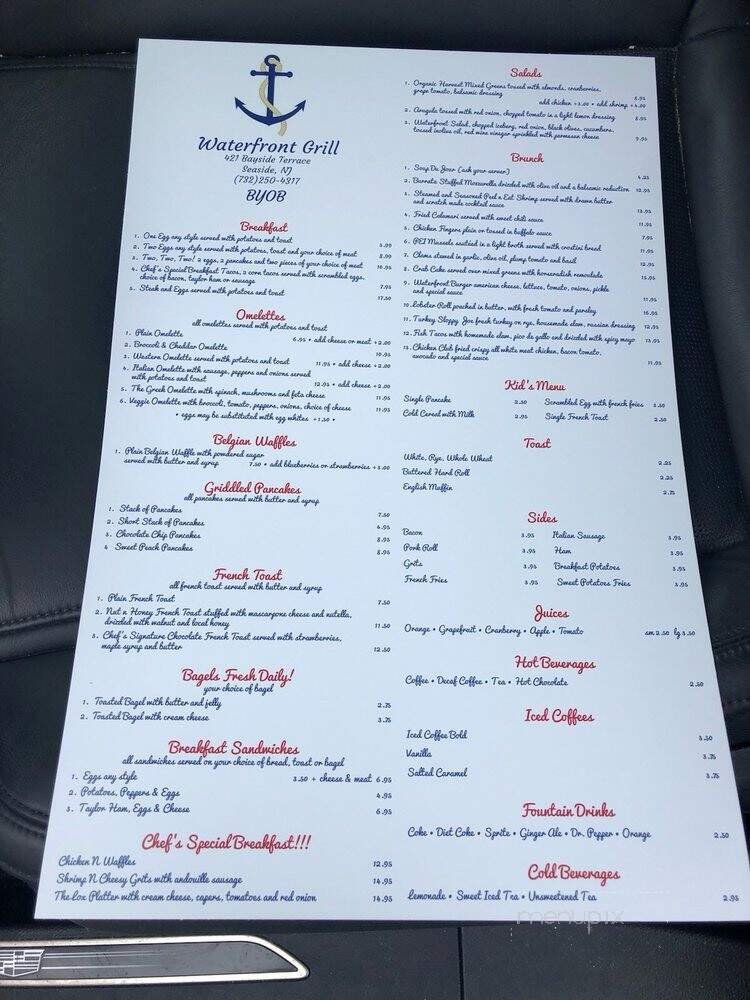 Waterfront Grill
421 Bayside Terrace
Seaside, NJ
(732)250-4317
BYOB
Breakfast
1. One Egg any style served with potatoes and toast
2. Two Eggs any style served with potatoes, toast and your choice of meat 5.99
3. Two, Two, Two! 2 eggs, 2 pancakes and two pieces of your choice of meat 8.99
4. Chef's Special Breakfast Tacos, 2 corn tacos served with scrambled eggs, 10.95
choice of bacon, taylor ham or sausage 7.95
5. Steak and Eggs served with potatoes and toast 17.50
Omelettes
all omelettes served with potatoes and toast
1. Plain Omelette 6.95 • add cheese or meat +2.00
2. Broccoli & Cheddar Omelette 10.95
3. Western Omelette served with potatoes and toast 11.95 • add cheese +2.00
4. Italian Omelette with sausage, peppers and onions served
with potatoes and toast 12.95 • add cheese +2.00
5. The Greek Omelette with spinach, mushrooms and feta cheese 11.95
6. Veggie Omelette with broccoli, tomato, peppers, onions, choice of cheese 11.95
• eggs may be substituted with egg whites +1.50 •
Belgian Waffles
1. Plain Belgian Waffle with powdered sugar
served with butter and syrup 7.50 • add blueberries or strawberries +3.00
Griddled Pancakes
all pancakes served with butter and syrup
1. Stack of Pancakes 7.50
2. Short Stack of Pancakes 4.95
3. Chocolate Chip Pancakes 8.95
4 Sweet Peach Pancakes 8.95
French Toast
all french toast served with butter and syrup
1. Plain French Toast 7.50
2. Nut n Honey French Toast stuffed with mascarpone cheese and nutella,
drizzled with walnut and local honey 11.50
3. Chef's Signature Chocolate French Toast served with strawberries,
maple syrup and butter 12.50
Bagels Fresh Daily!
your choice of bagel
1. Toasted Bagel with butter and jelly 2.75
2. Toasted Bagel with cream cheese 3.75
Breakfast Sandwiches
all sandwiches served on your choice of bread, toast or bagel
1. Eggs any style 3.50 + cheese & meat 6.95
2. Potatoes, Peppers & Eggs 4.95
3. Taylor Ham, Eggs & Cheese 6.95
Chef's Special Breakfast!!!
Chicken N Waffles 12.95
Shrimp N Cheesy Grits with andouille sausage 14.95
The Lox Platter with cream cheese, capers, tomatoes and red onion 14.95
Salads
1. Organic Harvest Mixed Greens tossed with almonds, cranberries,
grape tomato, balsamic dressing 8.95
add chicken +3.00 • add shrimp +4.00
2. Arugula tossed with red onion, chopped tomato in a light lemon dressing 8.95
3. Waterfront Salad, chopped iceberg, red onion, black olives, cucumbers,
tossed in olive oil, red wine vinegar sprinkled with parmesan cheese 9.95
Brunch
1. Soup De Jour (ask your server) 4.25
2. Burrata Stuffed Mozzarella drizzled with olive oil and a balsamic reduction 12.95
3. Steamed and Seasoned Peel n Eat Shrimp served with drawn butter
and scratch made cocktail sauce 13.95
4. Fried Calamari served with sweet chili sauce 11.95
5. Chicken Fingers plain or tossed in buffalo sauce 7.95
6. PEI Mussels sautéed in a light broth served with crostini bread 11.95
7. Clams stewed in garlic, olive oil, plump tomato and basil 12.95
8. Crab Cake served over mixed greens with horseradish remoulade 15.95
9. Waterfront Burger american cheese, lettuce, tomato, onions, pickle
and special sauce 11.95
10. Lobster Roll poached in butter, with fresh tomato and parsley 16.95
11. Turkey Sloppy Joe fresh turkey on rye, housemade slaw, russian dressing 12.95
12. Fish Tacos with homemade slaw, pico de gallo and drizzled with spicy mayo 13.95
13. Chicken Club fried crispy all white meat chicken, bacon, tomato,
avocado and special sauce 11.95
Kid's Menu
Single Pancake 2.50 Scrambled Egg with french fries 3.50
Cold Cereal with Milk 2.95 Single French Toast 2.50
Toast
White, Rye, Whole Wheat 2.25
Buttered Hard Roll 2.25
English Muffin 2.75
Sides
Bacon 3.95 Italian Sausage 3.95
Pork Roll 3.95 Ham 3.95
Grits 3.95 Breakfast Potatoes 3.95
French Fries 3.95 Sweet Potatoes Fries 3.95
Juices
Orange • Grapefruit • Cranberry • Apple • Tomato sm 2.50 lg 3.50
Hot Beverages
Coffee • Decaf Coffee • Tea • Hot Chocolate 2.50
Iced Coffees
Iced Coffee Bold 3.50
Vanilla 3.75
Salted Caramel 3.75
Fountain Drinks
Coke • Diet Coke • Sprite • Ginger Ale • Dr. Pepper • Orange 2.50
Cold Beverages
Lemonade • Sweet Iced Tea • Unsweetened Tea 2.95
menupix